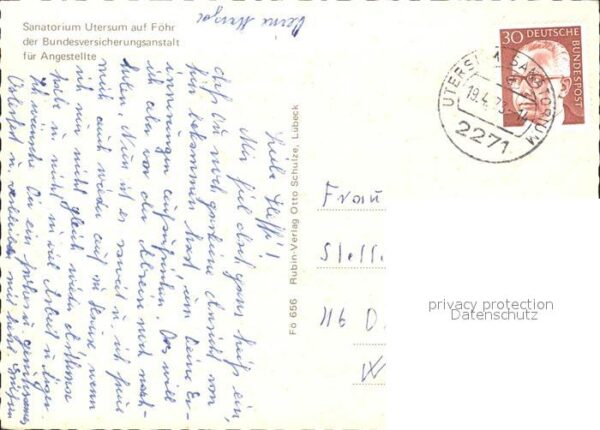 Sanatorium Utersum auf Föhr
der Bundesversicherungsanstalt
für Angestellte
30 DEUTSCHE
BUNDESPOST
UTERSUM SANATORIUM
19.4.73
2271
Liebe Steffi!
Mir fiel doch ganz heiß ein,
daß Du noch gar keine Ansicht von
hier bekommen hast, um Deine Er-
innerungen aufzufrischen. Das will
ich aber vor der Abreise noch nach-
holen. Nun ist es soweit u. ich freue
mich auch wieder auf zu Hause, wenn
ich nur nicht gleich wieder Asthma
habe u. nicht zu viel Arbeit u. Ärger.
Ich wünsche Dir ein frohes u.
Osterfest u. verbleibe mit Grüßen
Fö 656 Rubin-Verlag Otto Schulze, Lübeck
Frau
46 D
privacy protection
Datenschutz